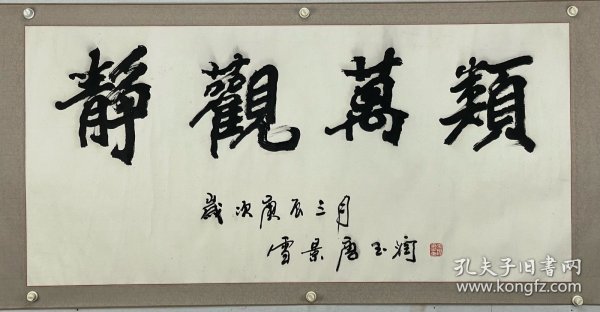 靜觀萬類
歲次庚辰三月
雪景唐玉潤
孔夫子旧书网
www.kongfz.com